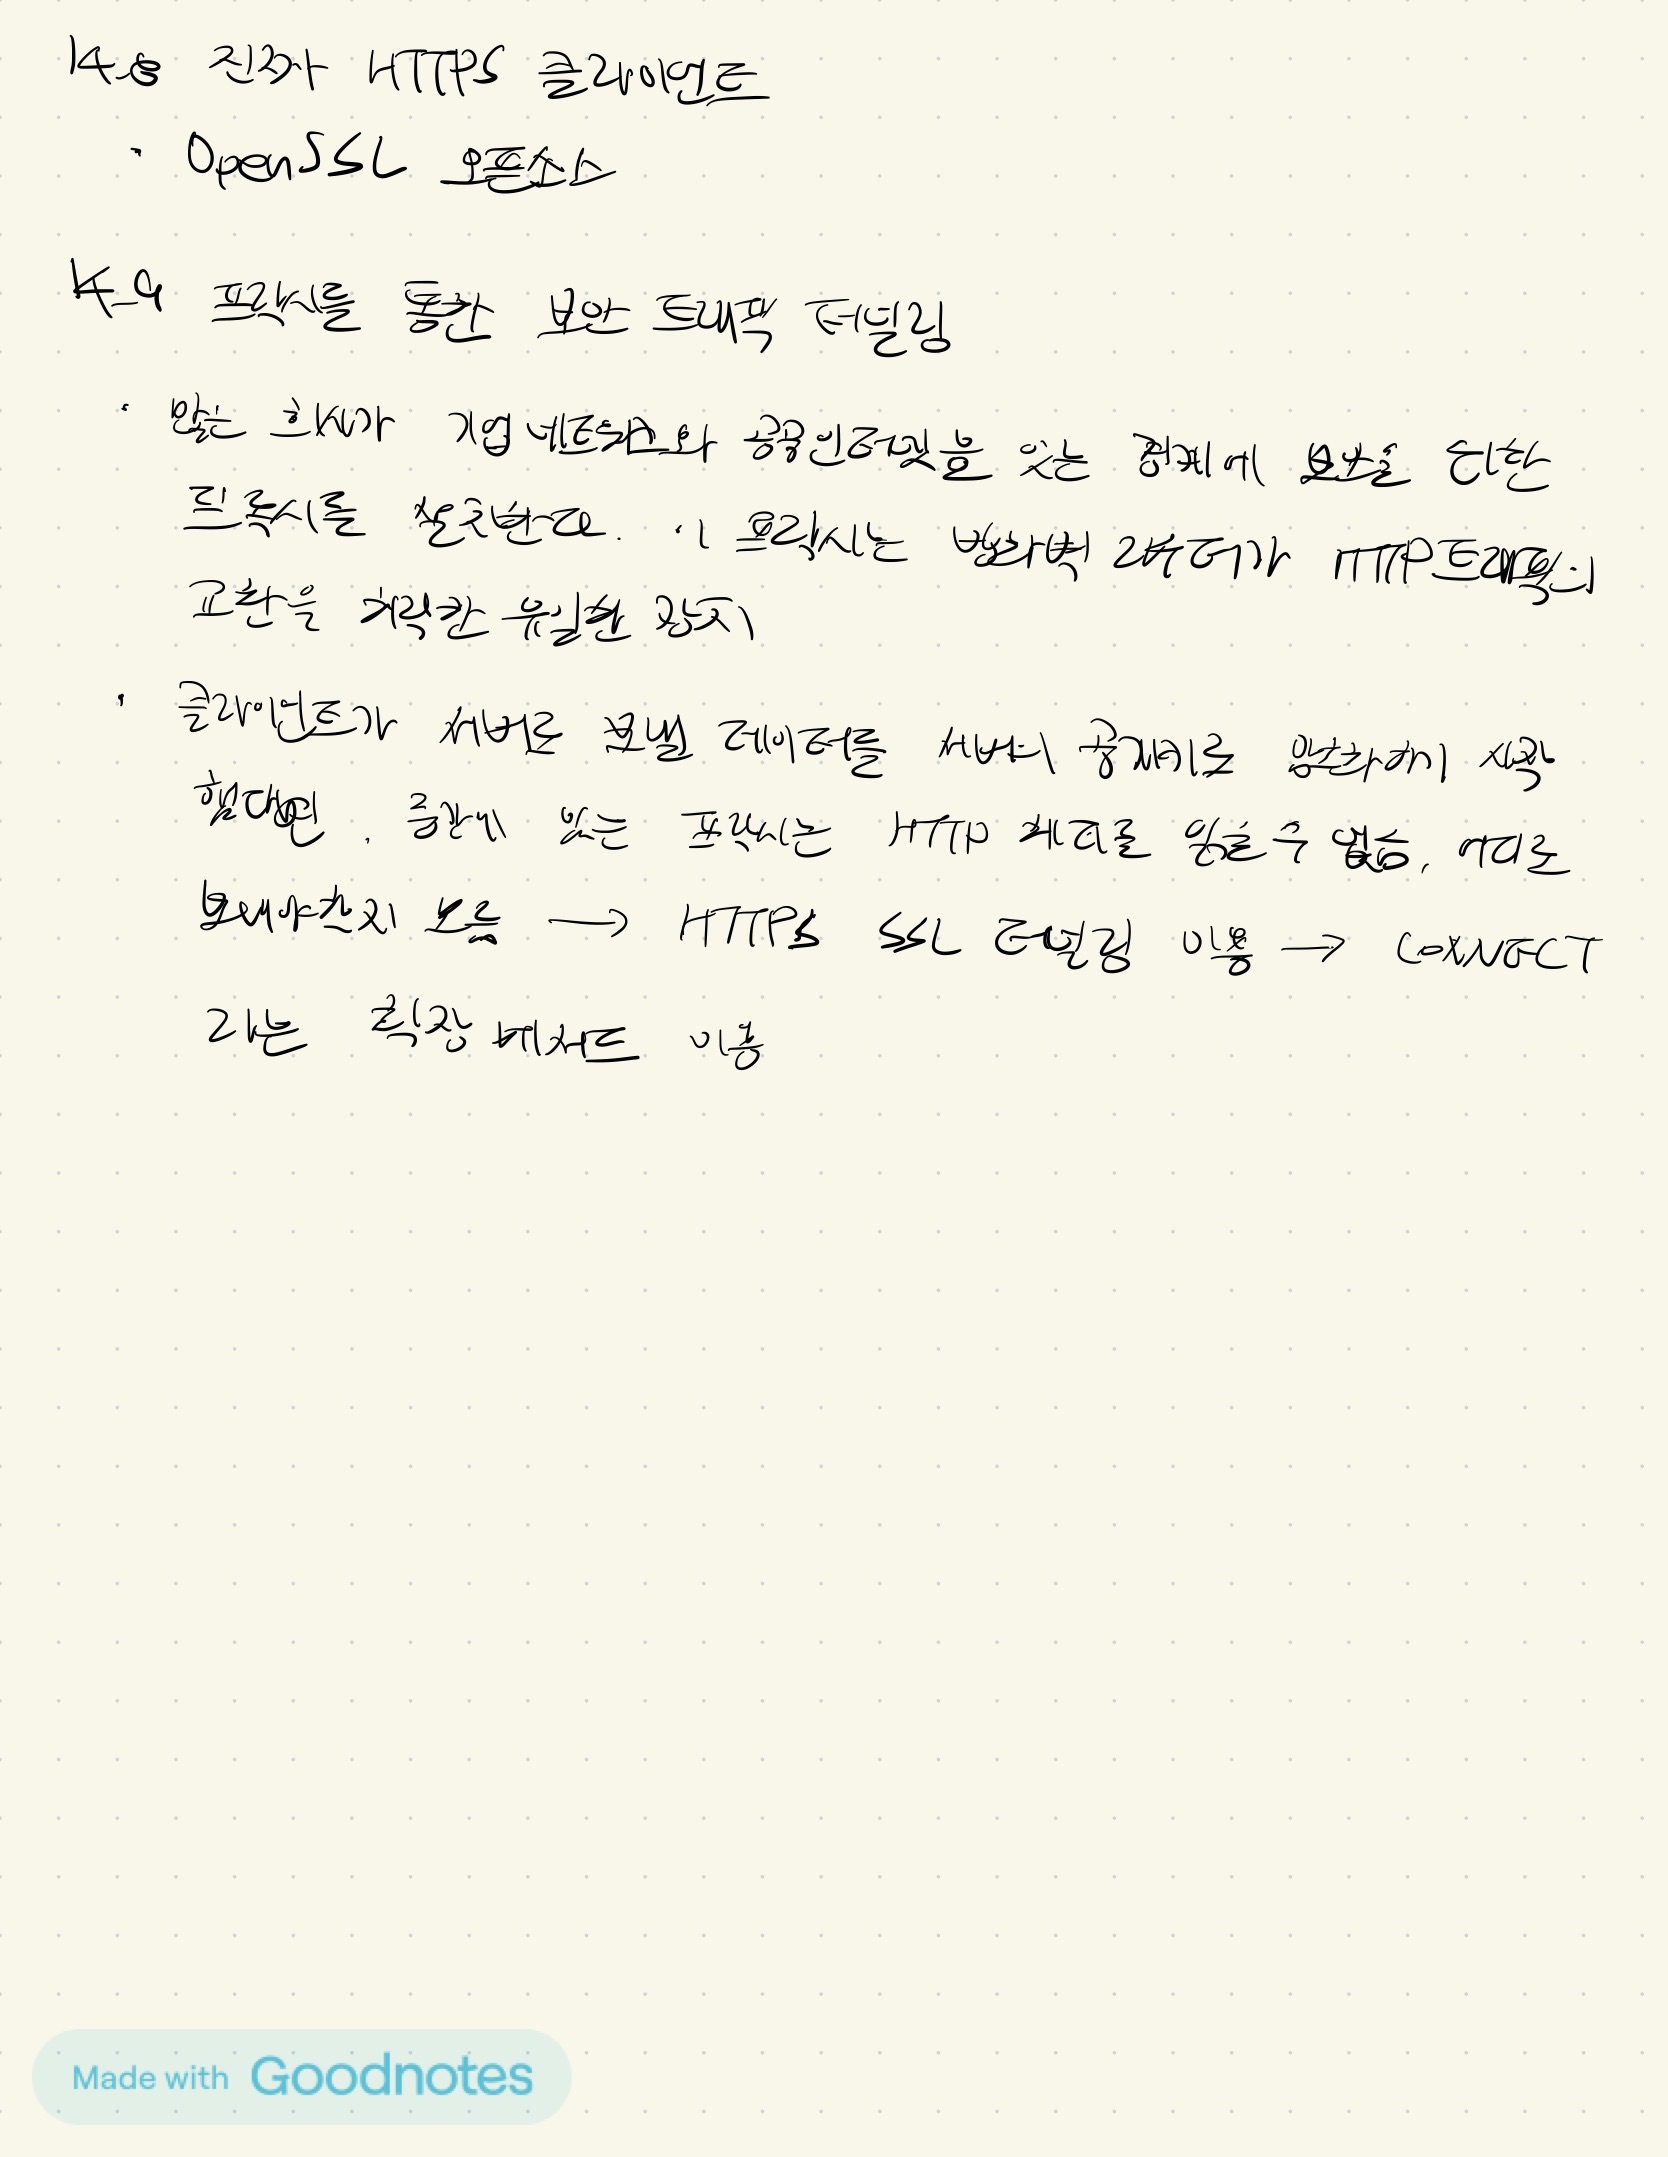 14.8 진짜 HTTPS 클라이언트
· OpenSSL 오픈소스
14.9 프락시를 통한 보안 트래픽 터널링
· 많은 회사가 기업 네트워크와 공공 인터넷을 잇는 경계에 보안을 위한
프록시를 설치한다. 이 프락시는 방화벽 라우터가 HTTP 트래픽의
교환을 허락한 유일한 장치
· 클라이언트가 서버로 보낼 데이터를 서버의 공개키로 암호화하기 시작
했다면, 중간에 있는 프락시는 HTTP 헤더를 읽을 수 없음, 어디로
보내야 한지 모름 → HTTPS SSL 터널링 이용 → CONNECT
라는 확장 메서드 이용
Made with Goodnotes